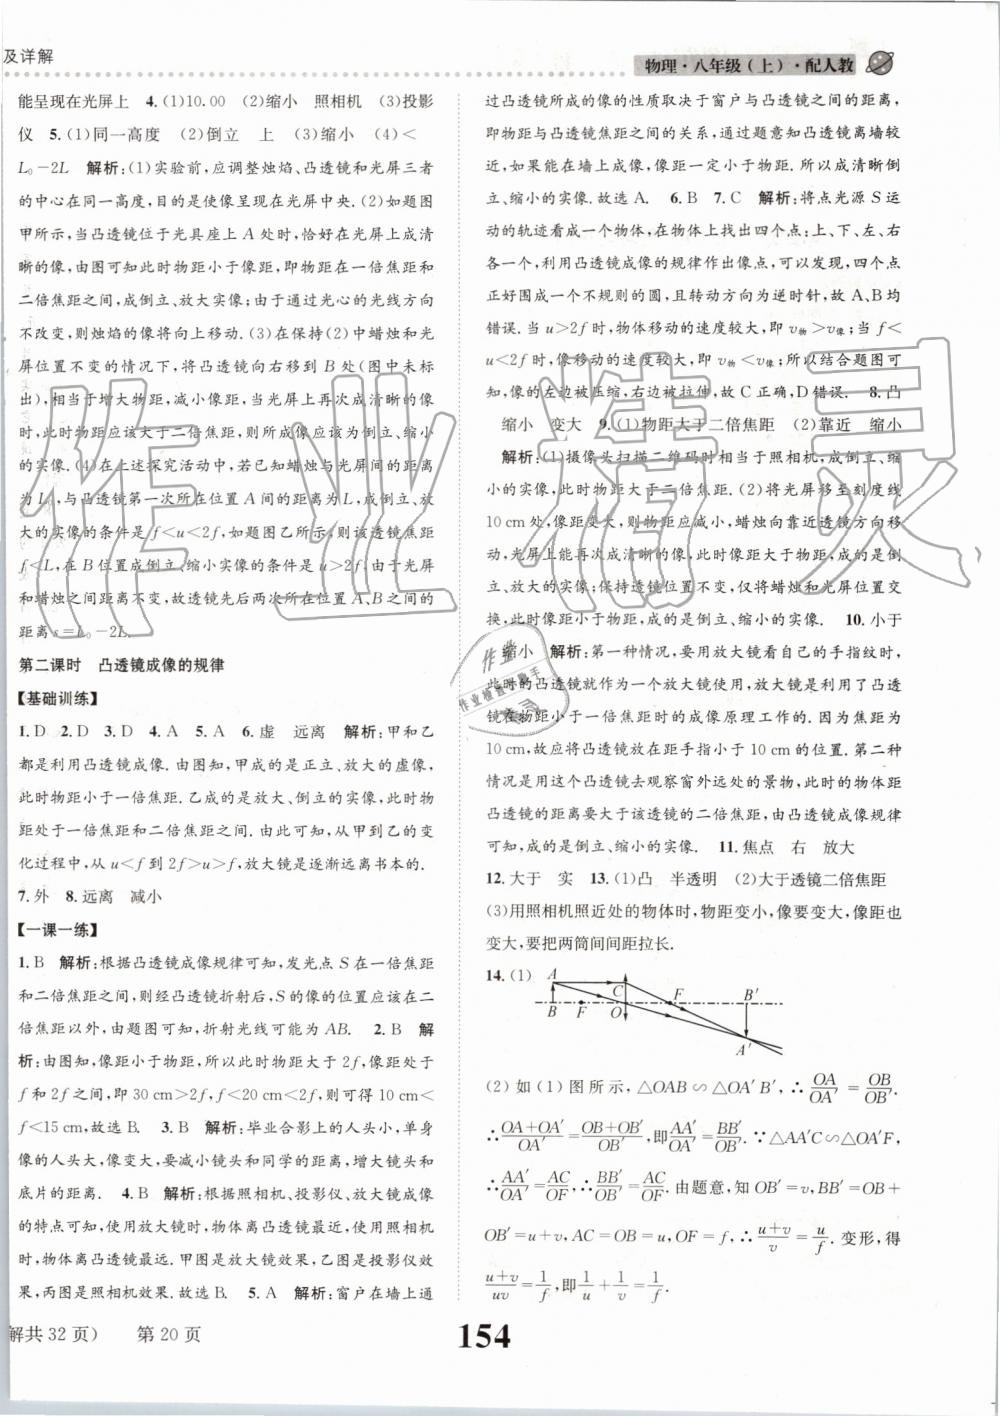 及详解
物理·八年级(上)·配人教
能呈现在光屏上 4.(1)10.00 (2)缩小 照相机 (3)投影
仪 5.(1)同一高度 (2)倒立 上 (3)缩小 (4)<
L₀-2L 解析:(1)实验前,应调整烛焰、凸透镜和光屏三者
的中心在同一高度,目的是使像呈现在光屏中央.(2)如题图
甲所示,当凸透镜位于光具座上A处时,恰好在光屏上成清
晰的像,由图可知此时物距小于像距,即物距在一倍焦距和
二倍焦距之间,成倒立、放大实像;由于通过光心的光线方向
不改变,则烛焰的像将向上移动.(3)在保持(2)中蜡烛和光
屏位置不变的情况下,将凸透镜向右移到B处(图中未标
出),相当于增大物距,减小像距,当光屏上再次成清晰的像
时,此时物距应该大于二倍焦距,则所成像应为倒立、缩小
的实像.(4)在上述探究活动中,若已知蜡烛与光屏间的距离
为L₀,与凸透镜第一次所在位置A间的距离为L,成倒立、放
大的实像的条件是f<u<2f,如题图乙所示,则该透镜焦距
f<L,在B位置成倒立、缩小实像的条件是u>2f;由于光屏
和蜡烛之间距离不变,故透镜先后两次所在位置A、B之间的
距离s=L₀-2L.
第二课时 凸透镜成像的规律
【基础训练】
1.D 2.D 3.D 4.A 5.A 6.虚 远离 解析:甲和乙
都是利用凸透镜成像.由图知,甲成的是正立、放大的虚像,
此时物距小于一倍焦距.乙成的是放大、倒立的实像,此时物
距处于一倍焦距和二倍焦距之间.由此可知,从甲到乙的变
化过程中,从u<f到2f>u>f,放大镜是逐渐远离书本的.
7.外 8.远离 减小
【一课一练】
1.B 解析:根据凸透镜成像规律可知,发光点S在一倍焦距
和二倍焦距之间,则经凸透镜折射后,S的像的位置应该在二
倍焦距以外,由题图可知,折射光线可能为AB. 2.B 解
析:由图知,像距小于物距,所以此时物距大于2f,像距处于
f和2f之间,即30 cm>2f,f<20 cm<2f,则可得10 cm<
f<15 cm,故选B. 3.B 解析:毕业合影上的人头小,单身
像的人头大,像变大,要减小镜头和同学的距离,增大镜头和
底片的距离. 4.B 解析:根据照相机、投影仪、放大镜成像
的特点可知,使用放大镜时,物体离凸透镜最近,使用照相机
时,物体离凸透镜最远.甲图是放大镜效果,乙图是投影仪效
果,丙图是照相机效果.故选B. 5.A 解析:窗户在墙上通
过凸透镜所成的像的性质取决于窗户与凸透镜之间的距离,
即物距与凸透镜焦距之间的关系,通过题意知凸透镜离墙较
近,如果能在墙上成像,像距一定小于物距.所以成清晰倒
立、缩小的实像.故选A. 6.B 7.C 解析:将点光源S运
动的轨迹看成一个物体,在物体上找出四个点:上、下、左、右
各一个,利用凸透镜成像的规律作出像点,可以发现,四个点
正好围成一个不规则的圆,且转动方向为逆时针,故A、B均
错误.当u>2f时,物体移动的速度较大,即v物>v像;当f<
u<2f时,像移动的速度较大,即v物<v像;所以结合题图可
知,像的左边被压缩,右边被拉伸,故C正确,D错误. 8.凸
缩小 变大 9.(1)物距大于二倍焦距 (2)靠近 缩小
解析:(1)摄像头扫描二维码时相当于照相机,成倒立、缩小
的实像,此时物距大于二倍焦距.(2)将光屏移至刻度线
10 cm处,像距变大,则物距应减小,蜡烛向靠近透镜方向移
动,光屏上能再次成清晰的像,此时像距大于物距,成倒立、放
大的实像;保持透镜位置不变,仅将蜡烛和光屏的位置交
换,此时像距小于物距,成的是倒立、缩小的实像. 10.小于
缩小 解析:第一种情况,要用放大镜观看自己的手指纹,
此时的凸透镜是作为一个放大镜使用,放大镜是利用了凸透
镜在物距小于一倍焦距时的成像原理工作的.因为焦距为
10 cm,故应将凸透镜放在距手指小于10 cm的位置.第二种
情况是用这个凸透镜去观察窗外远处的景物,此时的物体距
凸透镜的距离要大于该凸透镜的二倍焦距,由凸透镜成像规律
可知,成的是倒立、缩小的实像. 11.焦点 右 放大
12.大于 实 13.(1)凸 半透明 (2)大于透镜二倍焦距
(3)用照相机照近处的物体时,物距变小,像要变大,像距也
变大,要把两筒间间距拉长.
14.(1)
A C F B′
B F O A′
(2)如(1)图所示,△OAB∽△OA′B′,∴OA/OA′=OB/OB′.
∴(OA+OA′)/OA′=(OB+OB′)/OB′,即AA′/OA′=BB′/OB′.∵△AA′C∽△OA′F,
∴AA′/OA′=AC/OF,∴BB′/OB′=AC/OF.由题意,知OB′=v,BB′=OB+
OB′=u+v,AC=OB=u,OF=f,∴(u+v)/v=u/f.变形,得
(u+v)/uv=1/f,即1/u+1/v=1/f.
解共32页) 第20页
154
作业精灵
作业
作业检查小助手
精灵